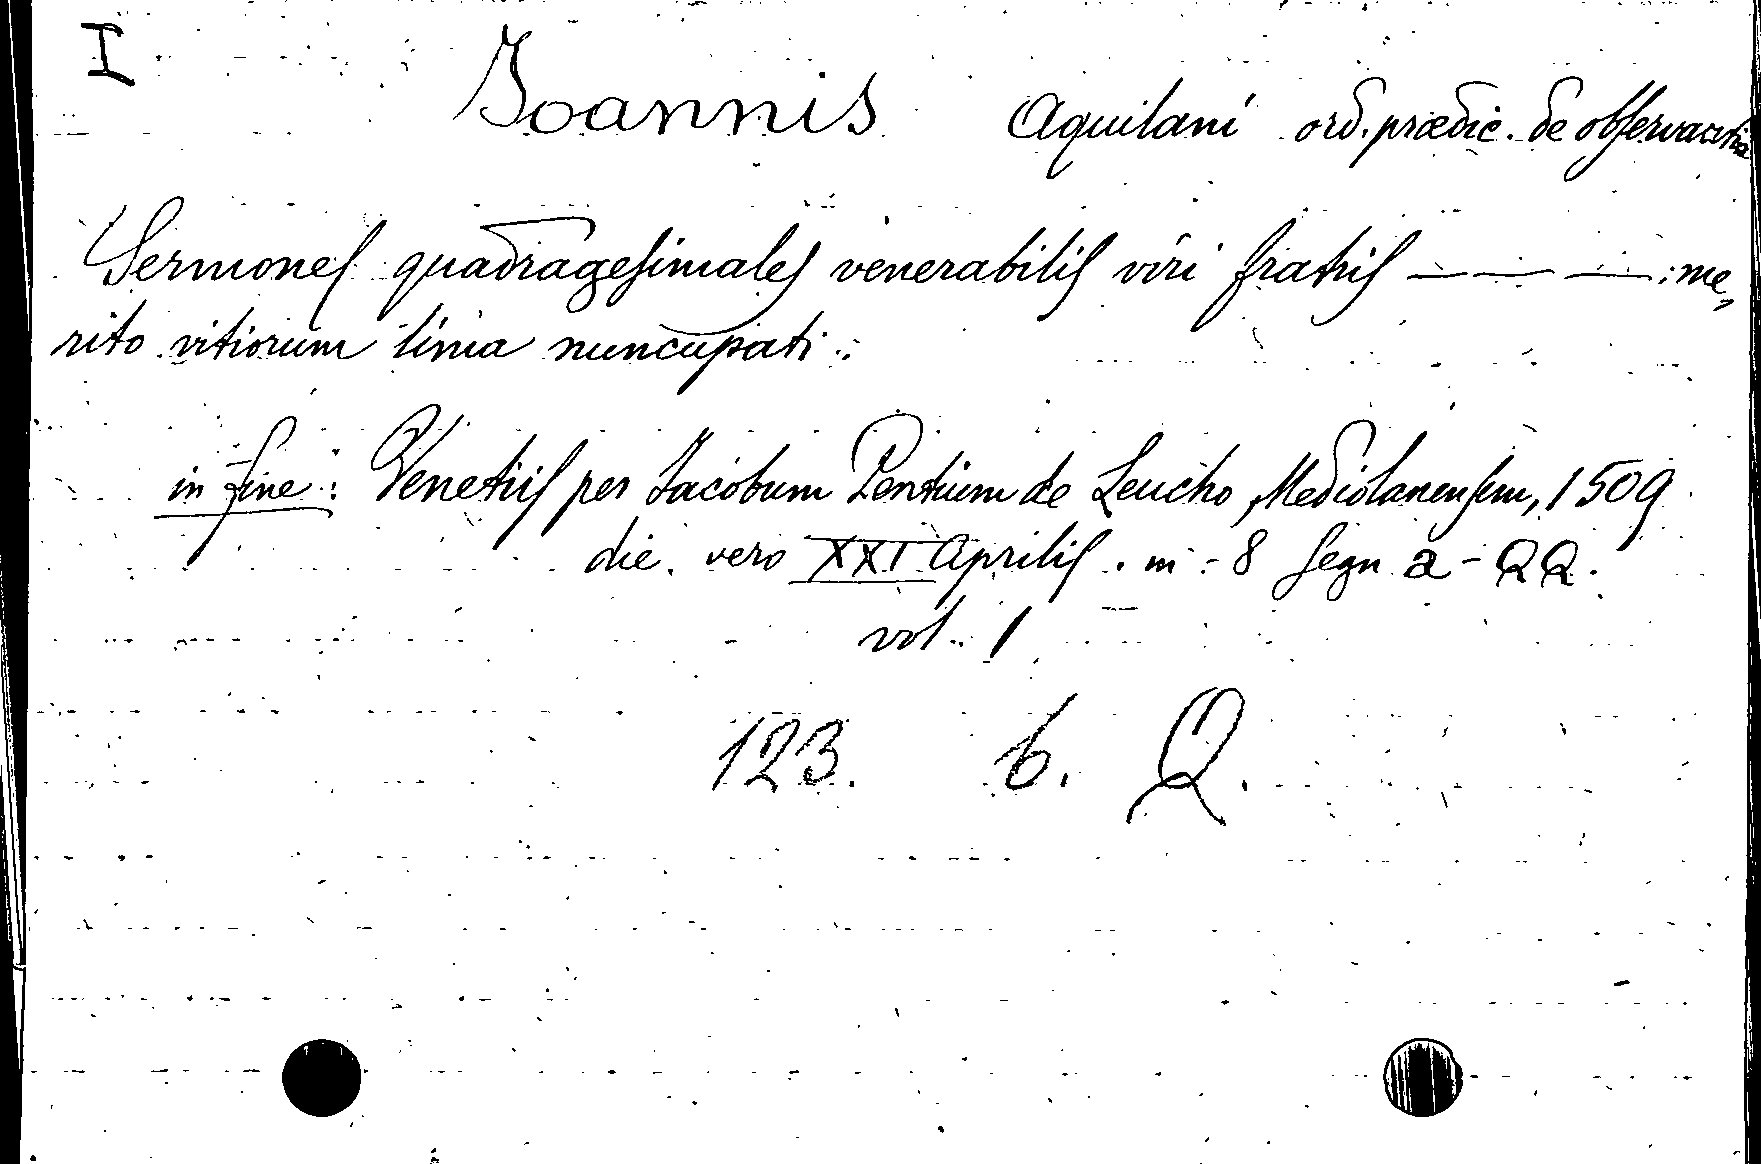 I
Joannis Aquilani ord. prædic. de observantia
Sermones quadragesimales venerabilis viri fratris — — — : me„
rito vitiorum lima nuncupati.:
in fine: Venetiis per Jacobum Pentium de Leucho, Mediolanensem, 1509
die vero XXI Aprilis. in-8 segn a-QQ.
vol. 1
123. 6. Q.